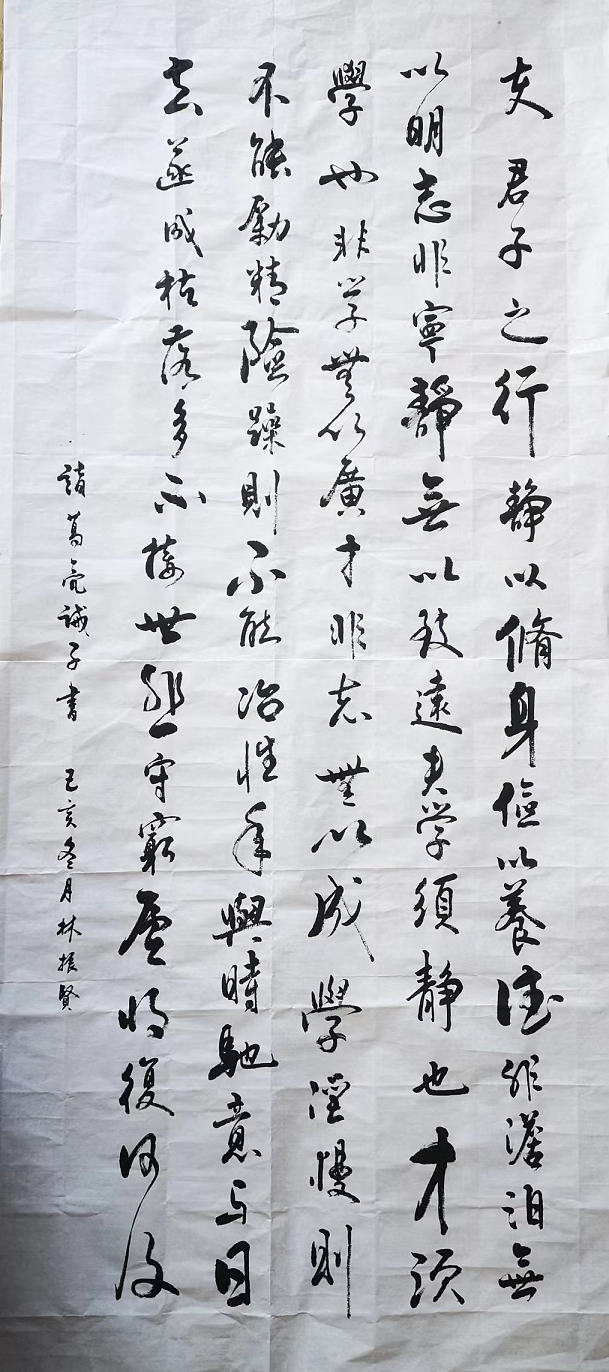 夫君子之行靜以脩身儉以養德非澹泊無
以明志非寧靜無以致遠夫学須静也才須
學也非学無以廣才非志無以成學淫慢則
不能勵精險躁則不能冶性年與時馳意与日
去遂成枯落多不接世悲守窮廬将復何及
諸葛亮誡子書 己亥冬月林振賢